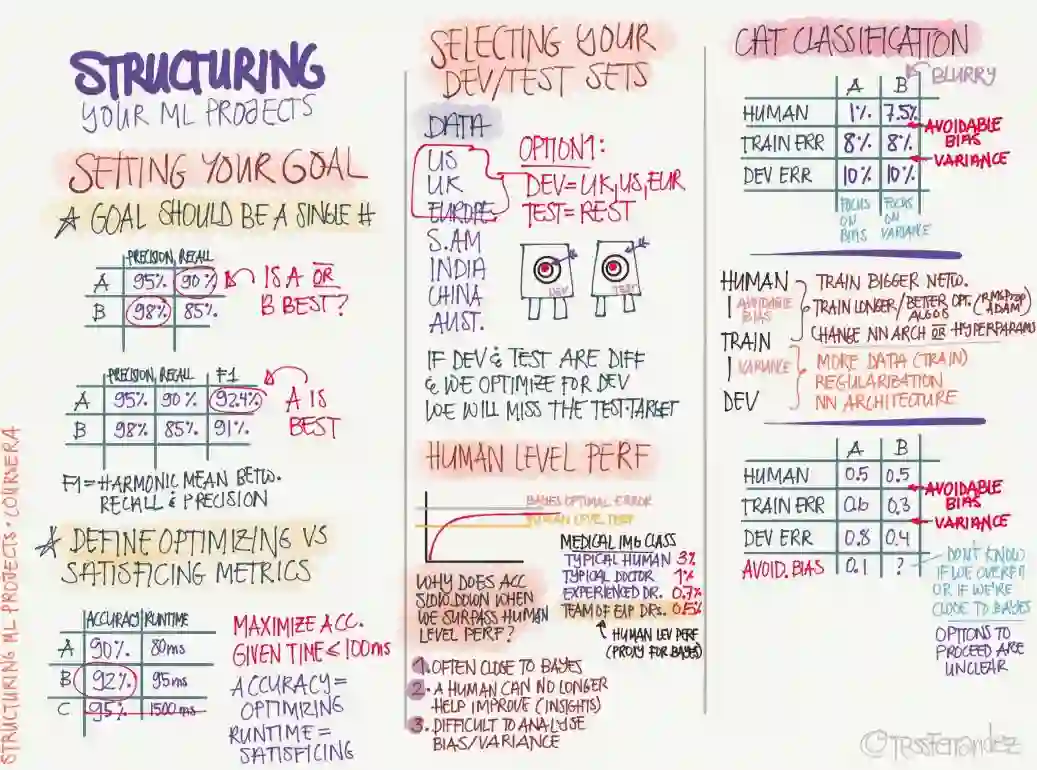 STRUCTURING
YOUR ML PROJECTS
SETTING YOUR GOAL
GOAL SHOULD BE A SINGLE #
PRECISION, RECALL
A 95% 90%
B 98% 85%
IS A OR
B BEST?
PRECISION, RECALL F1
A 95% 90% 92.4%
B 98% 85% 91%
A IS
BEST
F1 = HARMONIC MEAN BETW.
RECALL & PRECISION
DEFINE OPTIMIZING VS
SATISFICING METRICS
ACCURACY RUNTIME
A 90% 80ms
B 92% 95ms
C 95% 1500 ms
MAXIMIZE ACC.
GIVEN TIME ≤ 100ms
ACCURACY =
OPTIMIZING
RUNTIME =
SATISFICING
STRUCTURING ML PROJECTS · COURSERA
SELECTING YOUR
DEV/TEST SETS
DATA
US
UK
EUROPE
S.AM
INDIA
CHINA
AUST.
OPTION1:
DEV = UK, US, EUR
TEST = REST
DEV
TEST
IF DEV & TEST ARE DIFF
& WE OPTIMIZE FOR DEV
WE WILL MISS THE TEST-TARGET
HUMAN LEVEL PERF
BAYES OPTIMAL ERROR
HUMAN LEVEL PERF
WHY DOES ACC
SLOW DOWN WHEN
WE SURPASS HUMAN
LEVEL PERF?
MEDICAL IMG CLASS
TYPICAL HUMAN 3%
TYPICAL DOCTOR 1%
EXPERIENCED DR. 0.7%
TEAM OF EXP DRS. 0.5%
HUMAN LEV PERF
(PROXY FOR BAYES)
1. OFTEN CLOSE TO BAYES
2. A HUMAN CAN NO LONGER
HELP IMPROVE (INSIGHTS)
3. DIFFICULT TO ANALYSE
BIAS/VARIANCE
CAT CLASSIFICATION
BLURRY
A B
HUMAN 1% 7.5%
TRAIN ERR 8% 8%
DEV ERR 10% 10%
AVOIDABLE
BIAS
VARIANCE
FOCUS
ON
BIAS
FOCUS
ON
VARIANCE
HUMAN
AVOIDABLE
BIAS
TRAIN
VARIANCE
DEV
TRAIN BIGGER NETW.
TRAIN LONGER/BETTER OPT. ALGOS (RMSProp ADAM)
CHANGE NN ARCH OR HYPERPARAMS
MORE DATA (TRAIN)
REGULARIZATION
NN ARCHITECTURE
A B
HUMAN 0.5 0.5
TRAIN ERR 0.6 0.3
DEV ERR 0.8 0.4
AVOID. BIAS 0.1 ?
AVOIDABLE
BIAS
VARIANCE
DON'T KNOW
IF WE OVERFIT
OR IF WE'RE
CLOSE TO BAYES
OPTIONS TO
PROCEED ARE
UNCLEAR
© TessFerrandez